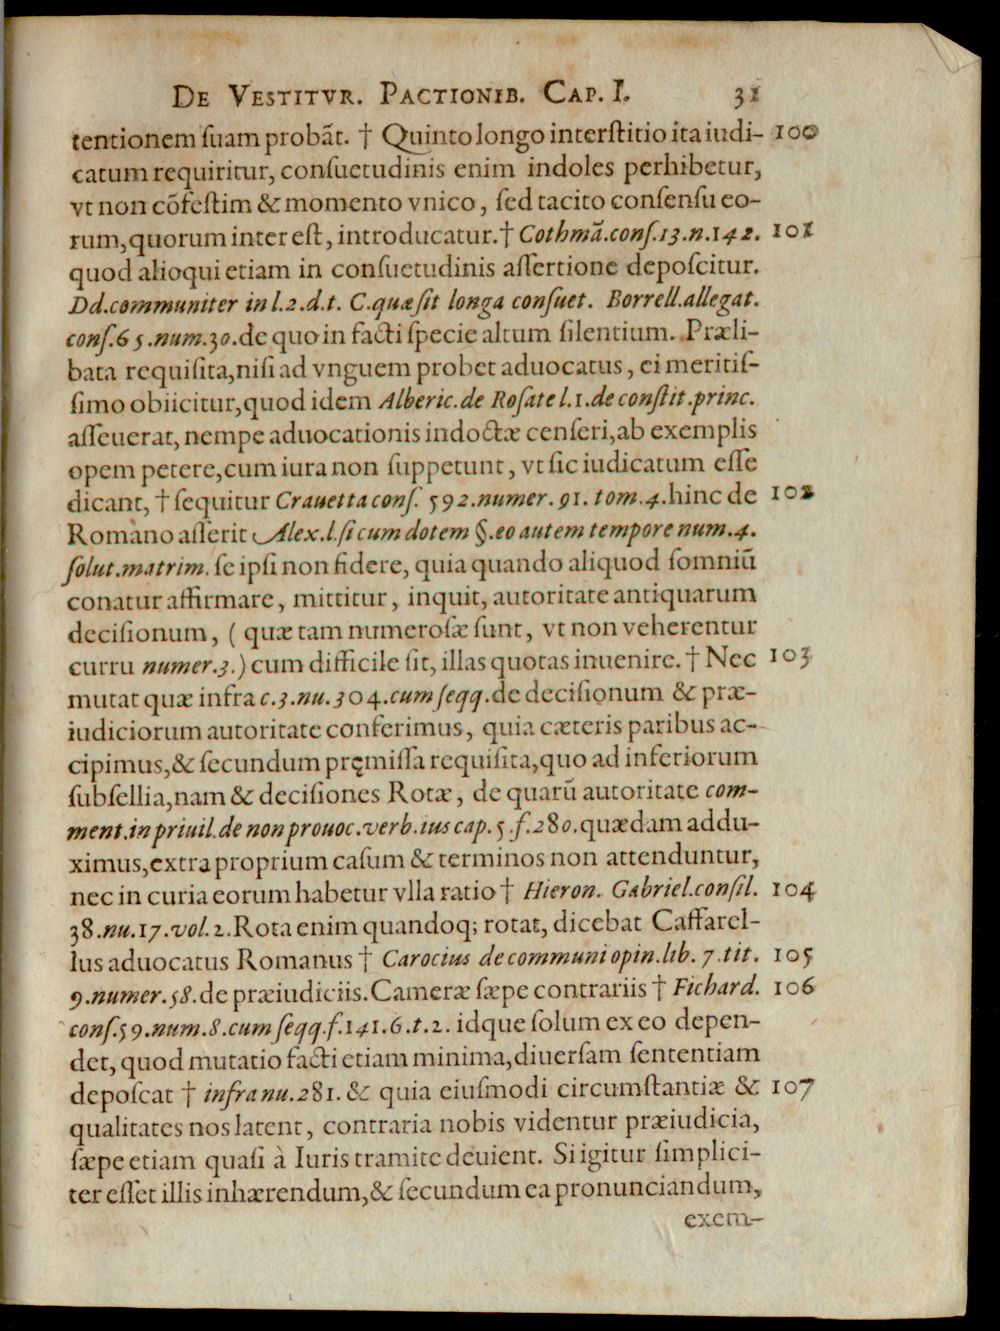 DE VESTITVR. PACTIONIB. CAP. I. 31
tentionem suam probāt. † Quinto longo interstitio ita iudi- 100
catum requiritur, consuetudinis enim indoles perhibetur,
vt non cōfestim & momento vnico, sed tacito consensu eo-
rum, quorum interest, introducatur. † Cothmā. cons. 13. n. 142. 101
quod alioqui etiam in consuetudinis assertione deposcitur.
Dd. communiter in l. 2. d. t. C. quæ sit longa consuet. Borrell. allegat.
cons. 65. num. 30. de quo in facti specie altum silentium. Præli-
bata requisita, nisi ad vnguem probet aduocatus, ei meritis-
simo obiicitur, quod idem Alberic. de Rosate l. 1. de constit. princ.
asseuerat, nempe aduocationis indoctæ censeri, ab exemplis
opem petere, cum iura non suppetunt, vt sic iudicatum esse
dicant, † sequitur Crauetta cons. 592. numer. 91. tom. 4. hinc de 102
Romano asserit Alex. l. si cum dotem §. eo autem tempore num. 4.
solut. matrim. se ipsi non fidere, quia quando aliquod somniū
conatur affirmare, mittitur, inquit, autoritate antiquarum
decisionum, (quæ tam numerosæ sunt, vt non veherentur
curru numer. 3.) cum difficile sit, illas quotas inuenire. † Nec 103
mutat quæ infra c. 3. nu. 304. cum seqq. de decisionum & præ-
iudiciorum autoritate conferimus, quia cæteris paribus ac-
cipimus, & secundum pręmissa requisita, quo ad inferiorum
subsellia, nam & decisiones Rotæ, de quarū autoritate com-
ment. in priuil. de non prouoc. verb. ius cap. 5. f. 280. quædam addu-
ximus, extra proprium casum & terminos non attenduntur,
nec in curia eorum habetur vlla ratio † Hieron. Gabriel. consil. 104
38. nu. 17. vol. 2. Rota enim quandoq; rotat, dicebat Caffarel-
lus aduocatus Romanus † Carocius de communi opin. lib. 7. tit. 105
9. numer. 58. de præiudiciis. Cameræ sæpe contrariis † Fichard. 106
cons. 59. num. 8. cum seqq. f. 141. 6. t. 2. idque solum ex eo depen-
det, quod mutatio facti etiam minima, diuersam sententiam
deposcat † infra nu. 281. & quia eiusmodi circumstantiæ & 107
qualitates nos latent, contraria nobis videntur præiudicia,
sæpe etiam quasi à Iuris tramite deuient. Si igitur simplici-
ter esset illis inhærendum, & secundum ea pronunciandum,
exem-